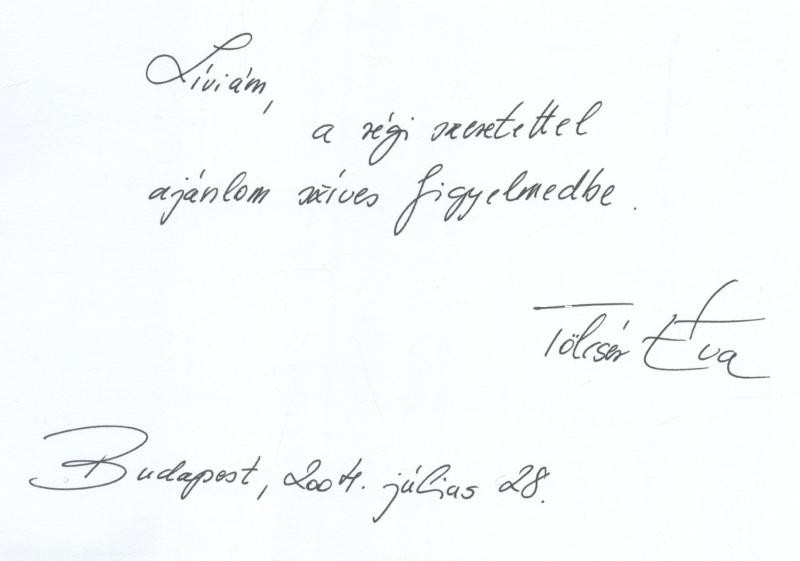 Líviám,
a régi szeretettel
ajánlom szíves figyelmedbe.
Tölcsér Éva
Budapest, 2004. július 28.